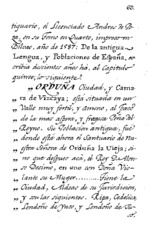 60.
tiquario, el Licenciado Andres de Po-
za, en su Tomo en Quarto, impreso en
Bilbao, año de 1587. De la antigua
Lengua, y Poblaciones de España, es-
cribia docientos años há, al Capitulo
quince, lo siguiente.
ORDUÑA Ciudad, y Cama-
ra de Vizcaya; esta situada en un
Valle muy fertil, y ameno,
al mas alto, y
Reyno. Su Poblacion antigua, fue
donde esta ahora el Santuario de Nu-
estra Señora de Orduña la Vieja; si-
no que despues acá, el Rey D. Alon-
so Decimo, en uno con Doña Vio-
lante su Muger. Tiene la
Ciudad, Aldeas de su Jurisdicion,
y son las siguientes. Ripa,
Londoño de Yuso, y Londoño de Su-
so.